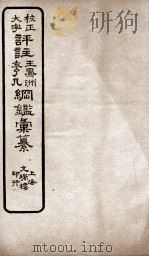 校正
大字
評註
王鳳洲
袁了凡
綱鑑彙纂
上海
文瑞樓
印行
www.youhansheng.com